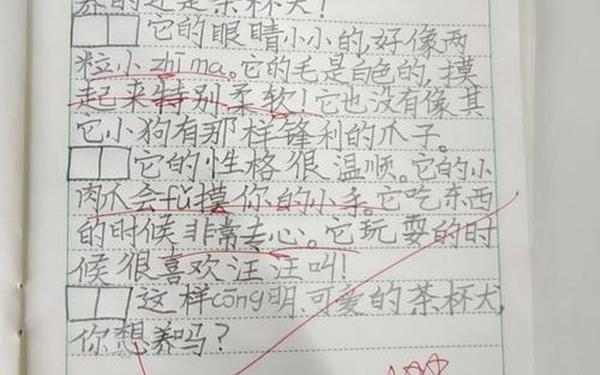 养的还是茶杯犬!
它的眼睛小小的,好像两
粒小zhī ma。它的毛是白色的,摸
起来特别柔软!它也没有像其
它小狗有那样锋利的爪子。
它的性格很温顺。它的小
肉爪会fǔ摸你的小手。它吃东西
的时候非常专心。它玩耍的时
候很喜欢汪汪叫!
这样cōng明、可爱的茶杯犬,
你想养吗?